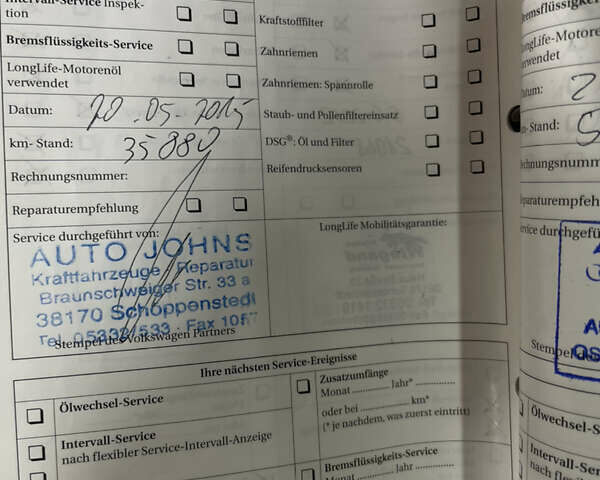 Intervall-Service Inspek-
tion
Bremsflüssigkeits-Service
LongLife-Motorenöl
verwendet
Datum: 20.05.2015
km- Stand: 35880
Rechnungsnummer:
Reparaturempfehlung
Service durchgeführt von:
AUTO JOHNS
Kraftfahrzeuge Reparatur
Braunschweiger Str. 33 a
38170 Schöppenstedt
Tel. Fax
Stempel des Volkswagen Partners
Kraftstofffilter
Zahnriemen
Zahnriemen: Spannrolle
Staub- und Pollenfiltereinsatz
DSG®: Öl und Filter
Reifendrucksensoren
LongLife Mobilitätsgarantie:
Ihre nächsten Service-Ereignisse
Ölwechsel-Service
Intervall-Service
nach flexibler Service-Intervall-Anzeige
Zusatzumfänge
Monat ............ Jahr* ............
oder bei ............ km*
(* je nachdem, was zuerst eintritt)
Bremsflüssigkeits-Service
Monat ............ Jahr ............
LongLife-Motorenö
verwendet
Datum:
km- Stand:
Rechnungsnumm
Reparaturempfeh
Service durchgefü
Stempel
Ölwechsel-Se
Intervall-Ser
nach flexible